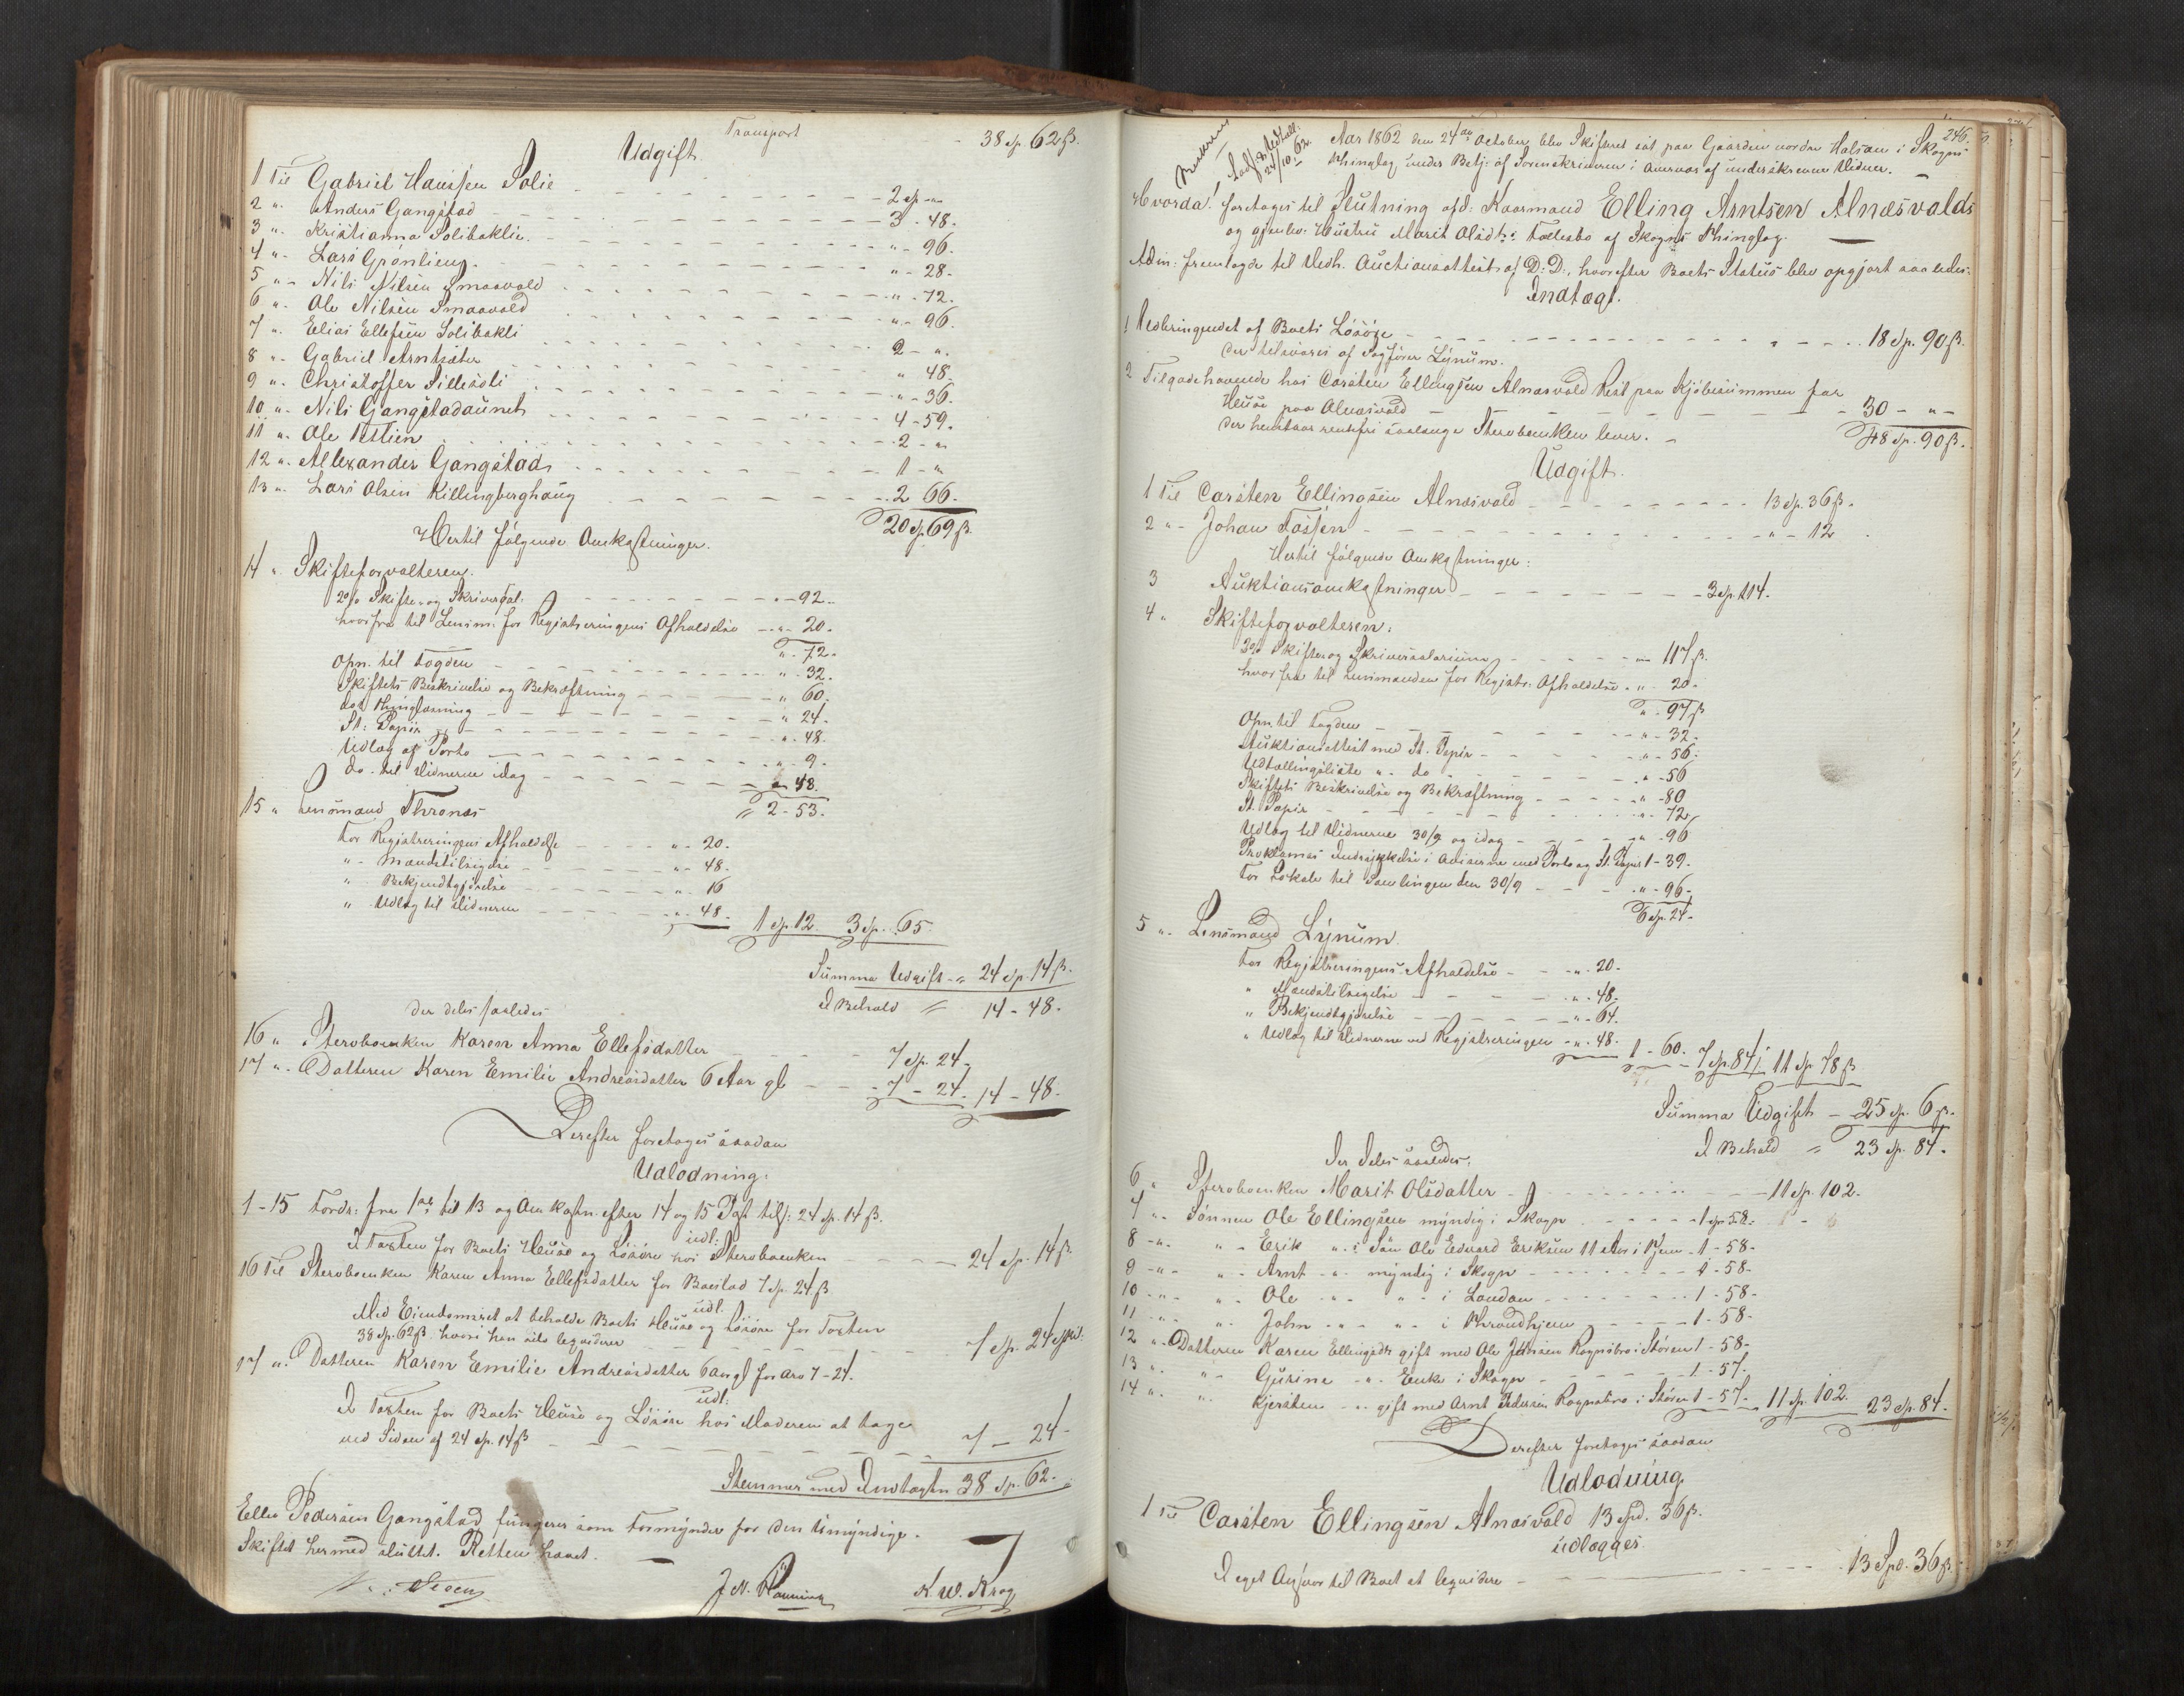 Transport 38 Sp. 62 ß.
Udgift
1 Til Gabriel Hanssen Solie - - 2 Sp - "
2 " Anders Gangstad - - 3 - 48.
3 " Kristianna Solibaklie - - " - 96.
4 " Lars Grönlieng - - " - 28.
5 " Nils Nilsen Smaavold - - " - 72.
6 " Ole Nilsen Smaavold - - " - 96.
7 " Elias Ellefsen Solibakli - - 2 - ".
8 " Gabriel Arntsæter - - " 48.
9 " Christoffer Sillisdli - - " - 36.
10 " Nils Gangstadaunet - - 4 - 59.
11 " Ole Vestlien - - 2 - "
12 " Allexander Gangstad - - 1 - "
13 " Lars Olsen Killingberghaug - - 2 66.
20 Sp. 69 ß.
Hertil følgende Omkostninger.
14 " Skifteforvalteren.
2 % Skifte- og Skriversal: - - " - 92.
hvorfra til Lensm: for Registreringens Afholdelse - " - 20.
" - 72.
Opn. til Fogden - - " - 32.
Skiftets Beskrivelse og Bekræftning - - " 60.
dets Thinglæsning - - " 24.
St: Papir - - " - 48.
Udlæg af Porto - - " - 9.
do. til Vidnerne idag - - " 48.
= 2 - 53.
15 " Lensmand Thronæs
For Registreringens Afholdelse - - " - 20.
" - Mandstilsigelse - - " - 48.
" Bekjendtgjørelse - - " 16
" Udlæg til Vidnerne - - " - 48.
1 Sp. 12. 3 Sp. 65.
Summa Udgift = 24 Sp. 14 ß.
I Behold = 14 - 48.
der deles saaledes
16 " Sterboenken Karen Anna Ellefsdatter - - 7 Sp. 24.
17 " Datteren Karen Emilie Andreasdatter 6 Aar gl - - 7 - 24. 14 - 48.
Derefter foretoges saadan
Udlodning:
1-15 Fordr: fra 1ste til 13 og Omkostn. efter 14 og 15 Post tils: 24 Sp. 14 ß.
udl:
I Taxten for Boets Heste og Løsøre hos Sterboenken - - 24 Sp. 14 ß.
16 Til Sterboenken Karen Anna Ellefsdatter for Boeslod 7 Sp. 24 ß
udl.
Med Eiendomsret at beholde Boets og Løsøre for Taxten
38 Sp. 62 ß. hvori hun selv leqviderer - - 7 Sp. 24 Skil:
17 " Datteren Karen Emilie Andreasdatter 6 Aar gl for Arv 7 - 24.
udl:
I Taxten for Boets og Løsøre hos Moderen at tage
ved Siden af 24 Sp. 14 ß - - 7 - 24
Stemmer med Indtægten 38 Sp. 62.
Ellev Pedersen Gangstad fungerer som Formynder for den Umyndige.
Skiftet hermed sluttet. Retten hævet.
J. N. K. W. Krog
246.
24/10 62.
Aar 1862 den 24de October blev Skifteret sat paa Gaarden nordre Halsan i Skogns
Thinglag under Betj: af Sorenskriveren i Overvær af underskrevne Vidner.
Hvorda! foretages til Slutning afd: Kaarmand Elling Arntsen Alnæsvalds
og gjenlev: Hustru Marit Olsdtr: Fællesbo af Skogns Thinglag.
Adm: fremlagde til Vedh. Auctionsattest af D: D:, hvorefter Boets Status blev opgjort saaledes:
Indtægt.
1 Udbringendet af Boets Løsøre - - 18 Sp. 90 ß.
der tilsvares af Sagfører Lynum.
2 Tilgodehavende hos Carsten Ellingsen Alnæsvald Rest paa Kjøbesummen for
paa Alnæsvald - - 30 - " -
der henstaar rentefri saalænge Sterboenken lever. - 48 Sp. 90 ß.
Udgift.
1 Til Carsten Ellingsen Alnæsvald - - 13 Sp. 36 ß.
2 " - Johan Fossen - - " - 12.
Hertil følgende Omkostninger:
3 Auktionsomkostninger - - 3 Sp. 114.
4 " Skifteforvalteren:
3 % Skifte og Skriversalarium - - 117 ß.
hvorfra til Lensmanden for Registr: Afholdelse - " - 20.
" - 97 ß
Opn. til Fogden - - " - 32.
Auktionsattest med St. Papir - - " - 56.
Udtællingsliste " do - - " - 56
Skiftets Beskrivelse og Bekræftning - - " - 80
St. Papir - - " - 72
Udlæg til Vidnerne 30/9 og idag - - " - 96
Proklamas Indrykkelse i Aviserne med Porto og St. Papir 1 - 39.
For Lokale til Samlingen den 30/9 - - " - 96.
6 Sp. 24.
5 " Lensmand Lynum.
For Registreringens Afholdelse - - " - 20.
" Mandstilsigelse - - " - 48.
" Bekjendtgjørelse - - " - 64.
" Udlæg til Vidnerne ved Registreringen - " - 48.
1 - 60. 7 Sp. 84 11 Sp. 78 ß.
Summa Udgift - 25 Sp. 6 ß.
I Behold = 23 Sp. 84.
der deles saaledes:
6 " Sterboenken Marit Olsdatter - - 11 Sp. 102.
7 " Sønnen Ole Ellingsen myndig i Skogn - - 1 Sp 58.
8 " " - Erik " : Søn Ole Edvard Eriksen 11 Aar i - 1 - 58.
9 " " - Arnt " myndig i Skogn - - 1 - 58.
10 " " - Ole " " i London - - 1 - 58.
11 " " John " " i Throndhjem - - 1 - 58.
12 " Datteren Karen Ellingsdtr gift med Ole Jensen Rognsbro i Støren 1 - 58.
13 " " Gurine " Enke i Skogn - - 1 - 57.
14 " " Kjersten " gift med Arnt Pedersen Rognsbro i Støren 1 - 57. 11 Sp. 102. 23 Sp. 84.
Derefter foretoges saadan
Udlodning
1 Til Carsten Ellingsen Alnæsvald 13 Spd. 36 ß.
udlægges
I eget Ansvar til Boet at leqvidere - - 13 Spd. 36 ß.